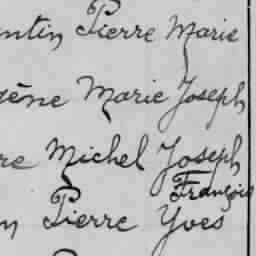 ntin Pierre Marie
gène Marie Joseph
re Michel Joseph
François
n Pierre Yves